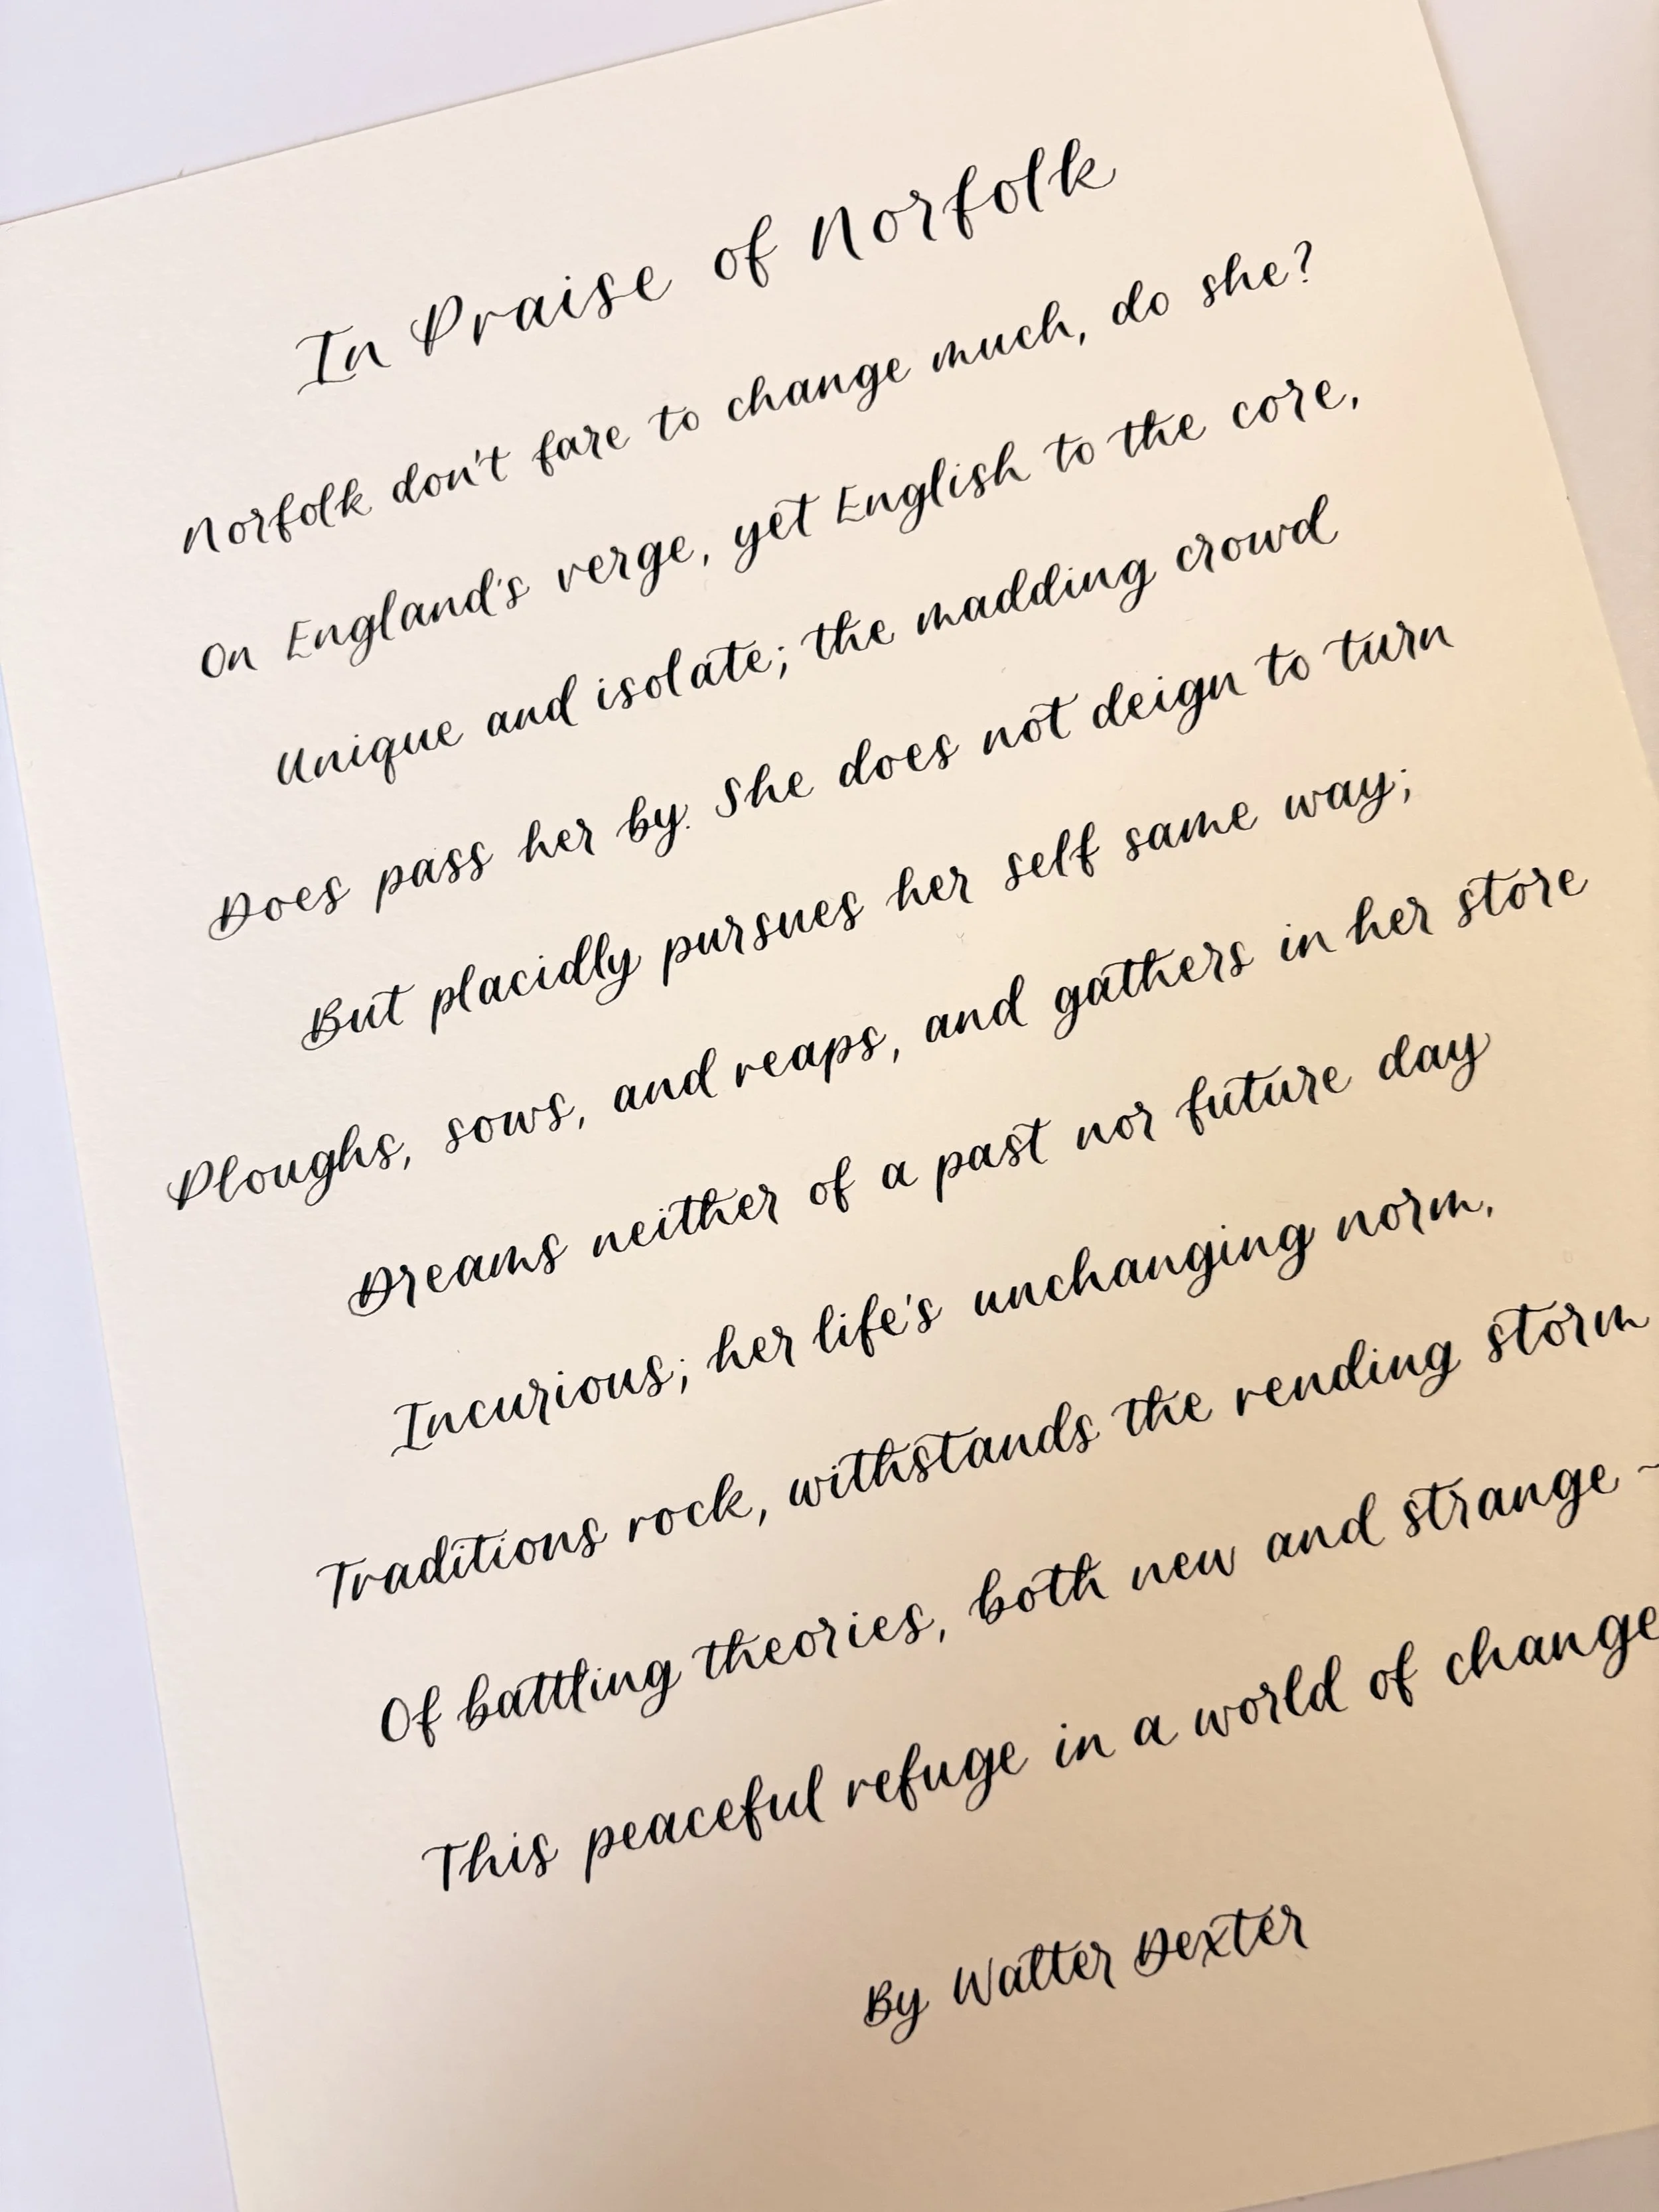 In Praise of Norfolk
Norfolk don't fare to change much, do she?
On England's verge, yet English to the core,
Unique and isolate; the madding crowd
Does pass her by. She does not deign to turn
But placidly pursues her self same way;
Ploughs, sows, and reaps, and gathers in her store
Dreams neither of a past nor future day
Incurious; her life's unchanging norm,
Traditions rock, withstands the rending storm
Of battling theories, both new and strange ~
This peaceful refuge in a world of change
By Walter Dexter